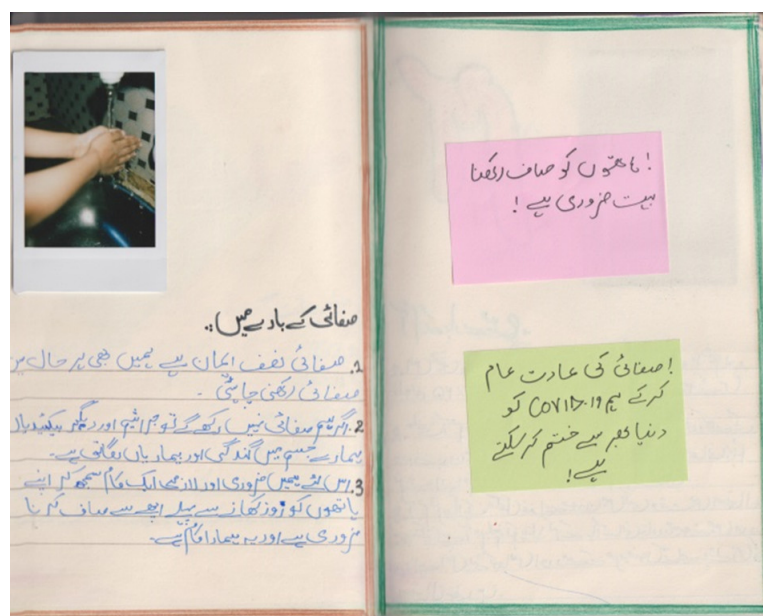 صفائی کے بارے میں:
1. صفائی نصف ایمان ہے ہمیں بھی ہر حال میں
صفائی رکھنی چاہئی۔
2. اگر ہم صفائی نہیں رکھے گے تو جراثیم اور دیگر بیکٹیریاں
ہمارے جسم میں گندگی اور بیماریاں لگاتی ہے۔
3. اس لئے ہمیں ضروری اور لازمی ایک کام سمجھ کر اپنے
ہاتھوں کو روز کھانے سے پہلے اچھے سے صاف کرنا
ضروری ہے اور یہ ہمارا کام ہے۔
! ہاتھوں کو صاف رکھنا
بہت ضروری ہے !
! صفائی کی عادت عام
کر کے ہم COVID.19 کو
دنیا بھر سے ختم کر سکتے
ہے !